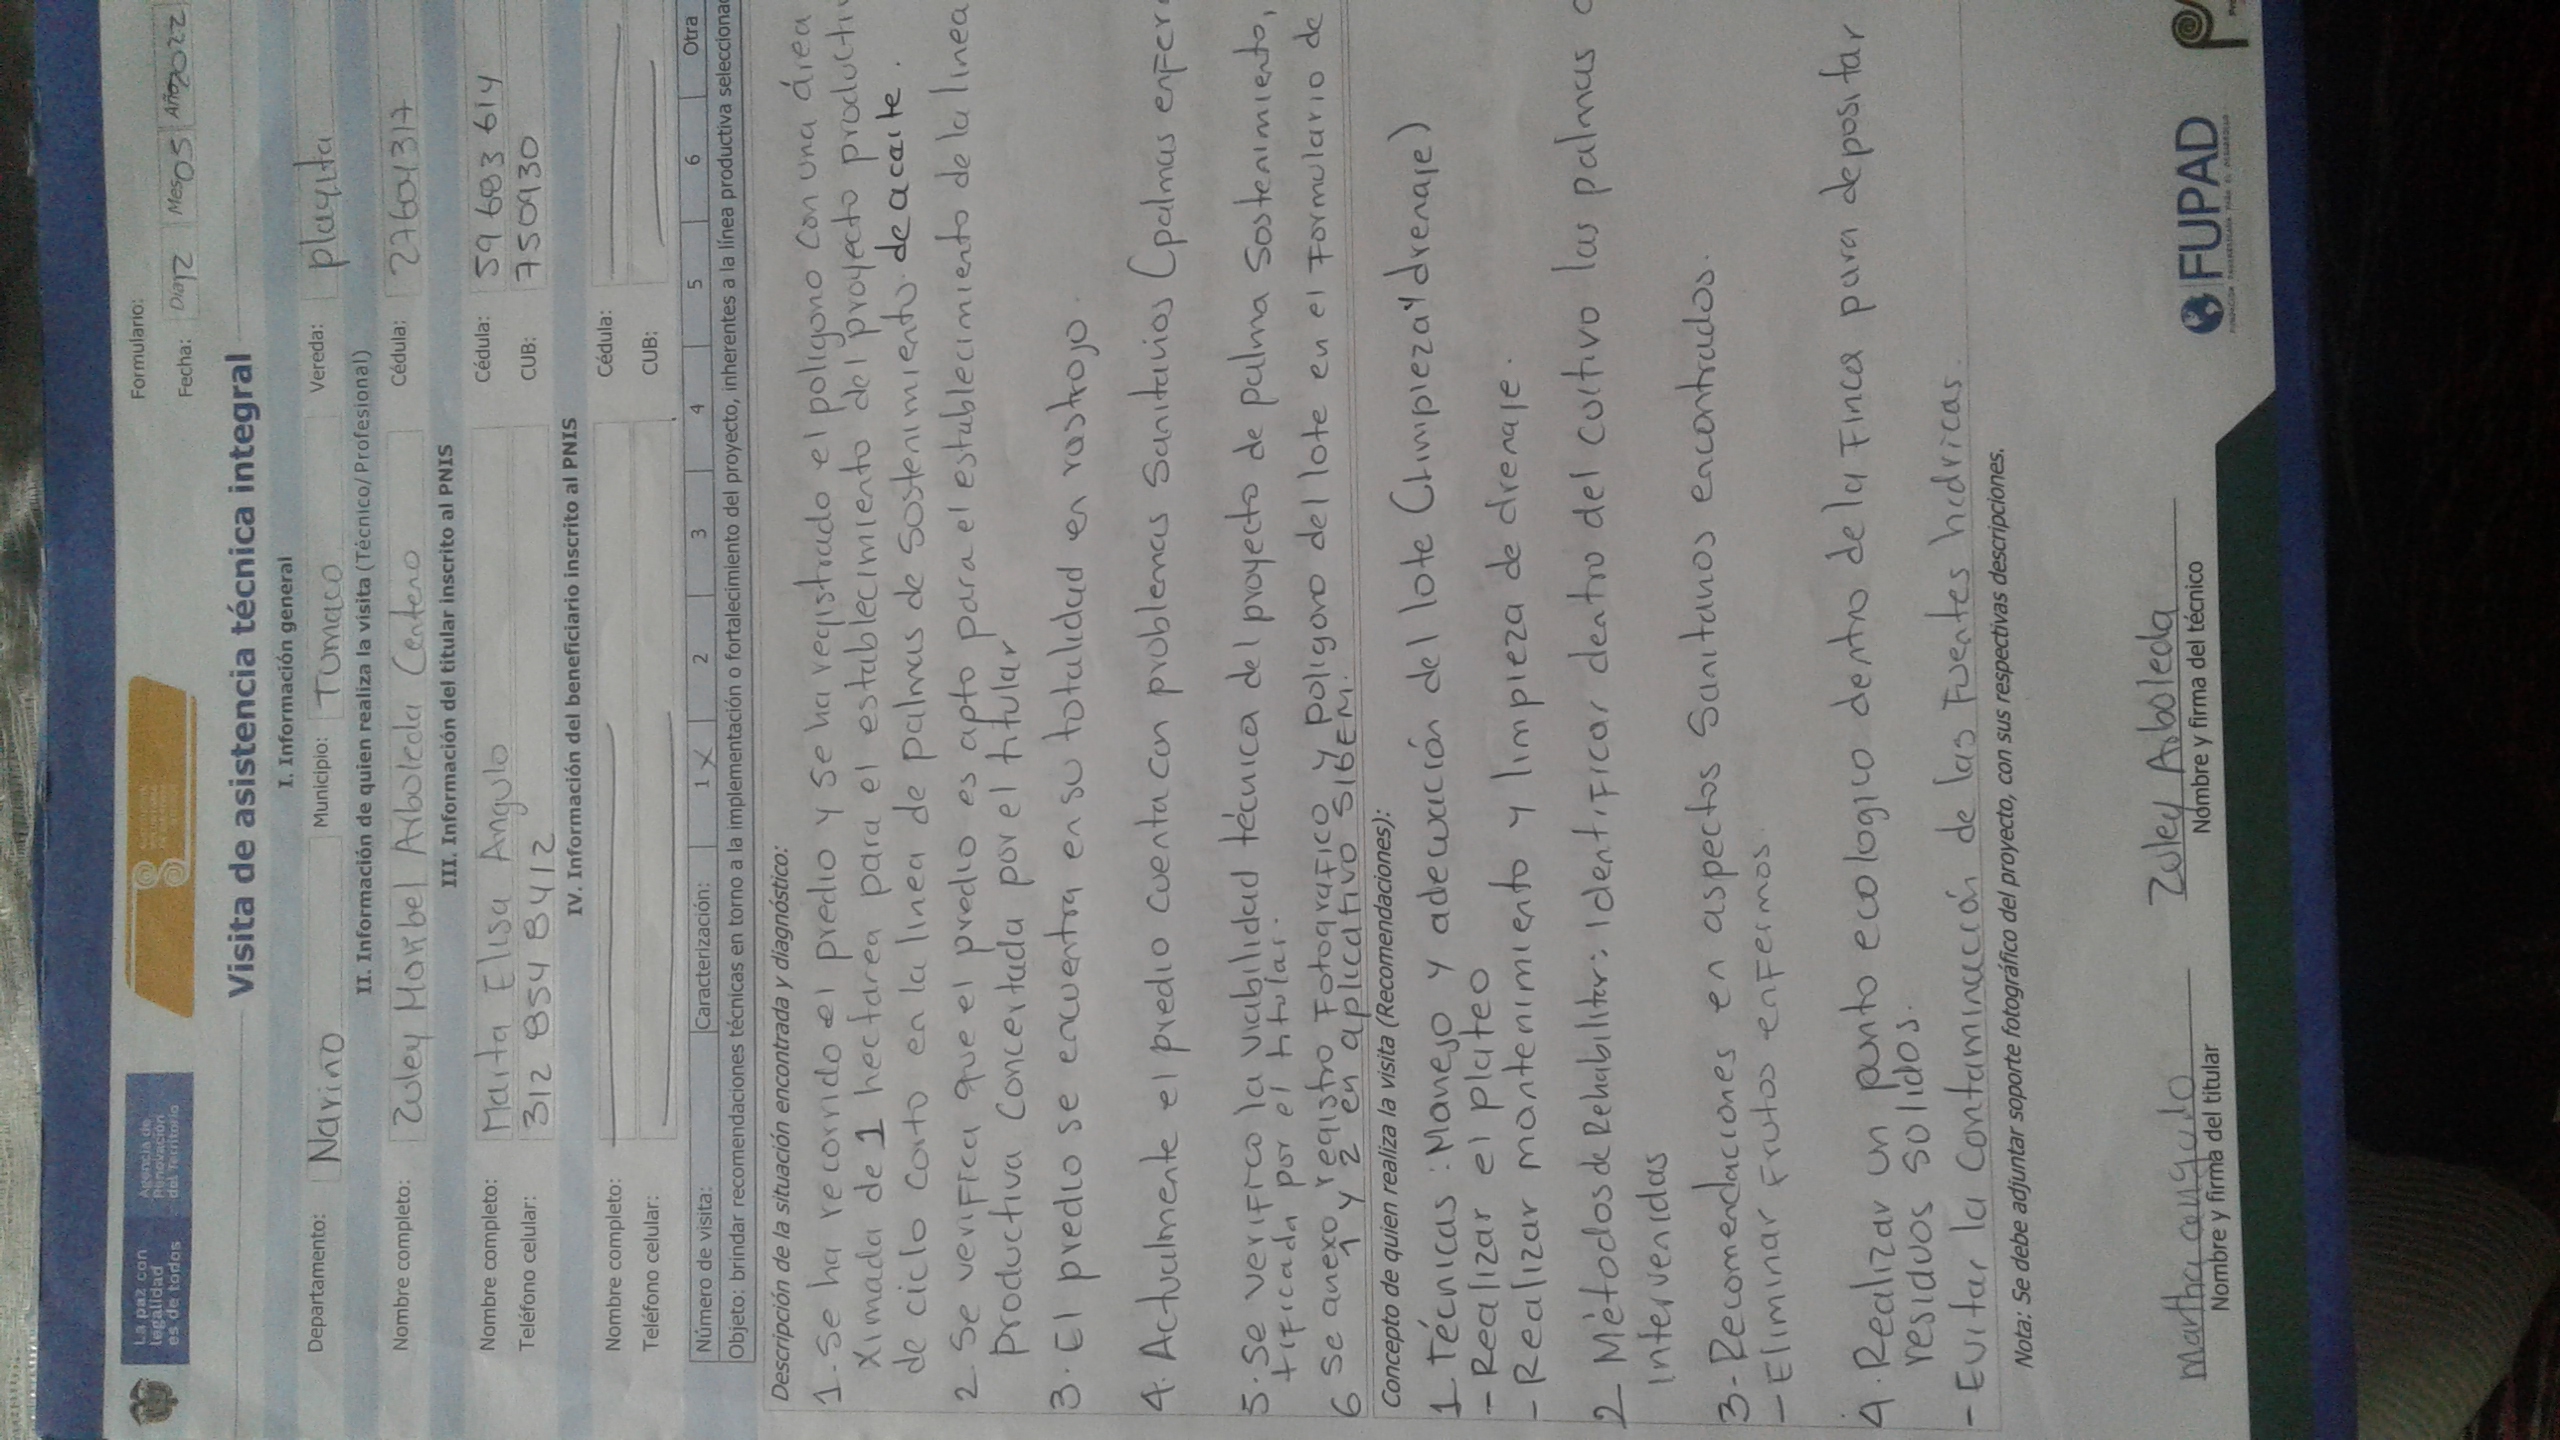 La paz con
legalidad
es de todos
Agencia de
Renovación
del Territorio
Formulario:
Fecha: Día 12 Mes 05 Año 2022
Visita de asistencia técnica integral
I. Información general
Departamento: Nariño Municipio: Tumaco Vereda: playita
II. Información de quien realiza la visita (Técnico/ Profesional)
Nombre completo: Zuley Maribel Arboleda Centeno Cédula: 27601317
III. Información del titular inscrito al PNIS
Nombre completo: Marta Elisa Angulo Cédula: 59 683 614
Teléfono celular: 312 854 8412 CUB: 750930
IV. Información del beneficiario inscrito al PNIS
Nombre completo: Cédula:
Teléfono celular: CUB:
Número de visita: Caracterización: 1 X 2 3 4 5 6 Otra
Objeto: brindar recomendaciones técnicas en torno a la implementación o fortalecimiento del proyecto, inherentes a la línea productiva seleccionad
Descripción de la situación encontrada y diagnóstico:
1. Se ha recorrido el predio y se ha registrado el poligono con una área
ximada de 1 hectarea para el establecimiento del proyecto producti
de ciclo corto en la linea de palmas de sostenimiento. de aceite.
2 Se verifica que el predio es apto para el establecimiento de la linea
productiva concertada por el titular
3. El predio se encuentra en su totalidad en rastrojo.
4. Actualmente el predio cuenta con problemas sanitarios (palmas enfer
5. Se verifico la viabilidad técnica del proyecto de palma sostenimiento,
tificada por el titular.
6 Se anexo registro fotografico y poligono del lote en el formulario de
1 y 2 en aplicativo SIGEM.
Concepto de quien realiza la visita (Recomendaciones):
1. Técnicas: Manejo y adecuación del lote (limpieza y drenaje)
- Realizar el plateo
- Realizar mantenimiento y limpieza de drenaje.
2 Métodos de Rehabilitar: identificar dentro del cultivo las palmas
intervenidas
3- Recomendaciones en aspectos sanitarios encontrados.
- Eliminar frutos enfermos.
4. Realizar un punto ecologico dentro de la finca para depositar
residuos solidos.
- Evitar la contaminación de las fuentes hidricas.
Nota: Se debe adjuntar soporte fotográfico del proyecto, con sus respectivas descripciones.
martha angulo
Nombre y firma del titular
Zuley Arboleda
Nombre y firma del técnico
FUPAD